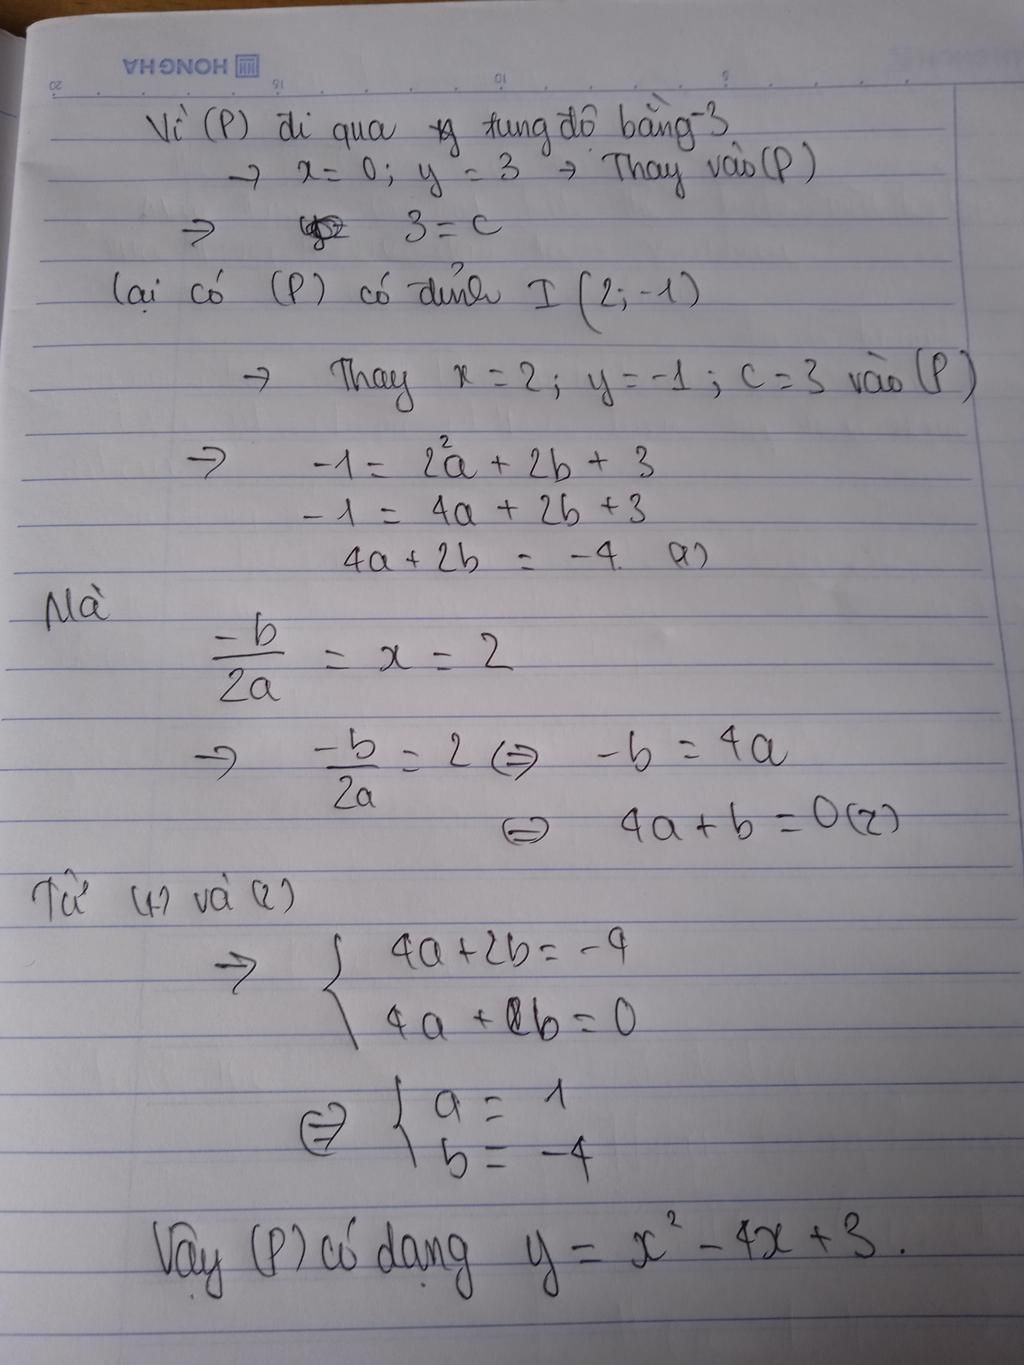 HONG HA
20 15 10 5
Vì (P) đi qua tung độ bằng -3
→ x = 0; y = 3 → Thay vào (P)
⇒ 3 = c
Lại có (P) có đỉnh I (2; -1)
→ Thay x = 2; y = -1; c = 3 vào (P)
→ -1 = 2²a + 2b + 3
-1 = 4a + 2b + 3
4a + 2b = -4 (1)
Mà
-b/2a = x = 2
→ -b/2a = 2 ⇔ -b = 4a
⇔ 4a + b = 0 (2)
Từ (1) và (2)
→ { 4a + 2b = -4
4a + b = 0
⇔ { a = 1
b = -4
Vậy (P) có dạng y = x² - 4x + 3.